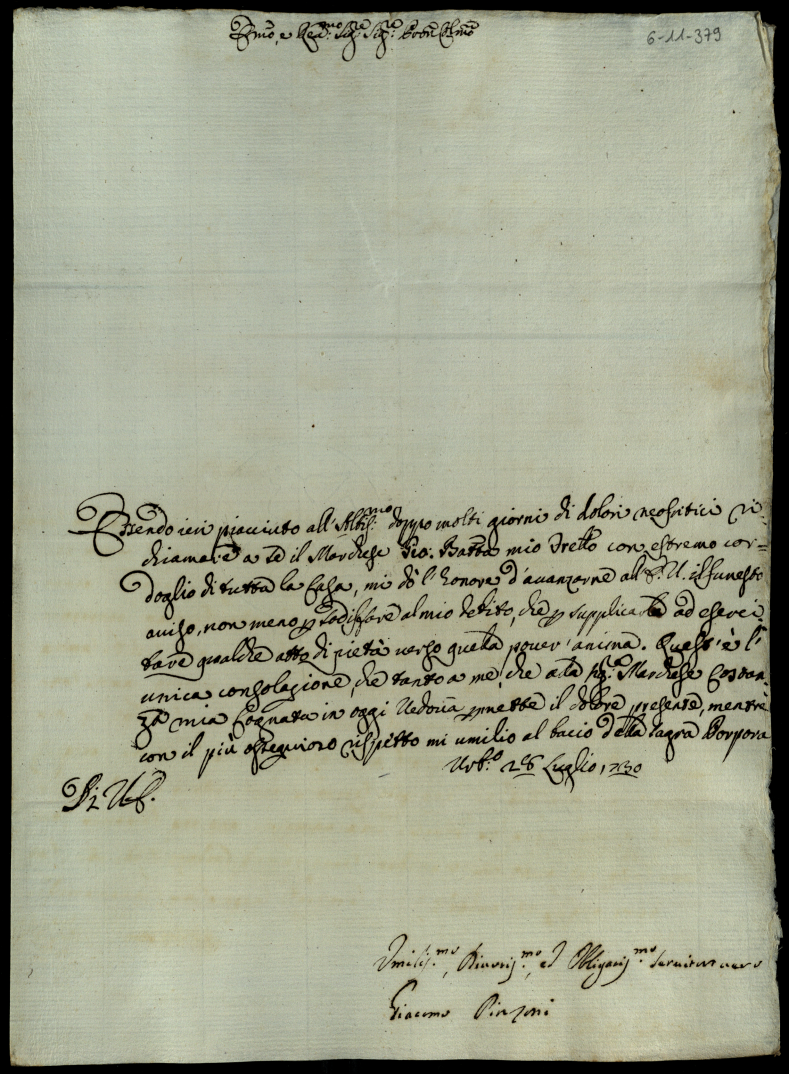 Em.o, e Rev.mo Sig.re Sig.re Pron Colmo
6-11-379
Essendo ieri piaciuto all'Altis.mo doppo molti giorni di dolori neofritici ri-
chiamare a se il Marchese Gio. Batta mio Fratello con estremo cor=
doglio di tutta la Casa, mi dò l'honore d'avanzarne all'E.V. il funesto
aviso, non meno p sodisfare al mio debito, che p supplicarla ad eserci
tare qualche atto di pietà verso quella pover'anima. Quest'è l'
unica consolazione, che tanto a me, che alla Sig.ra Marchese Costan
za mia Cognata in oggi Vedova pmette il dolore presente, mentre
con il più ossequioso rispetto mi umilio al bacio della Sagra Porpora
Urb.o 28 Luglio 1730
Di V.E.
Umilis.mo, Divotis.mo, ed Obligatis.mo Servitor vero
Giacomo Pinzoni